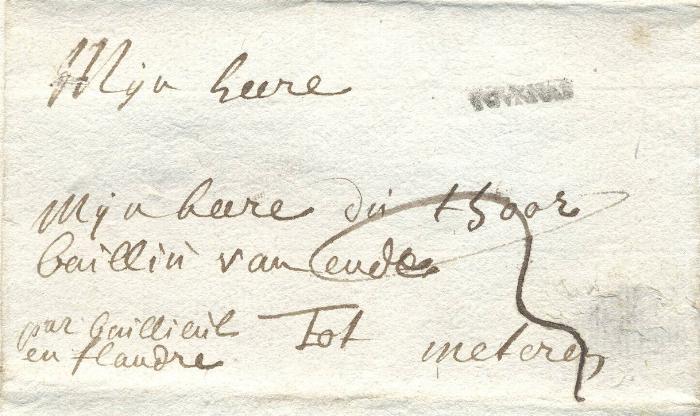 Mijn heere
TOURNAY
Mijn heere du thoor
bailliu van ende
par baillieul
en flandre
Tot meteren
3